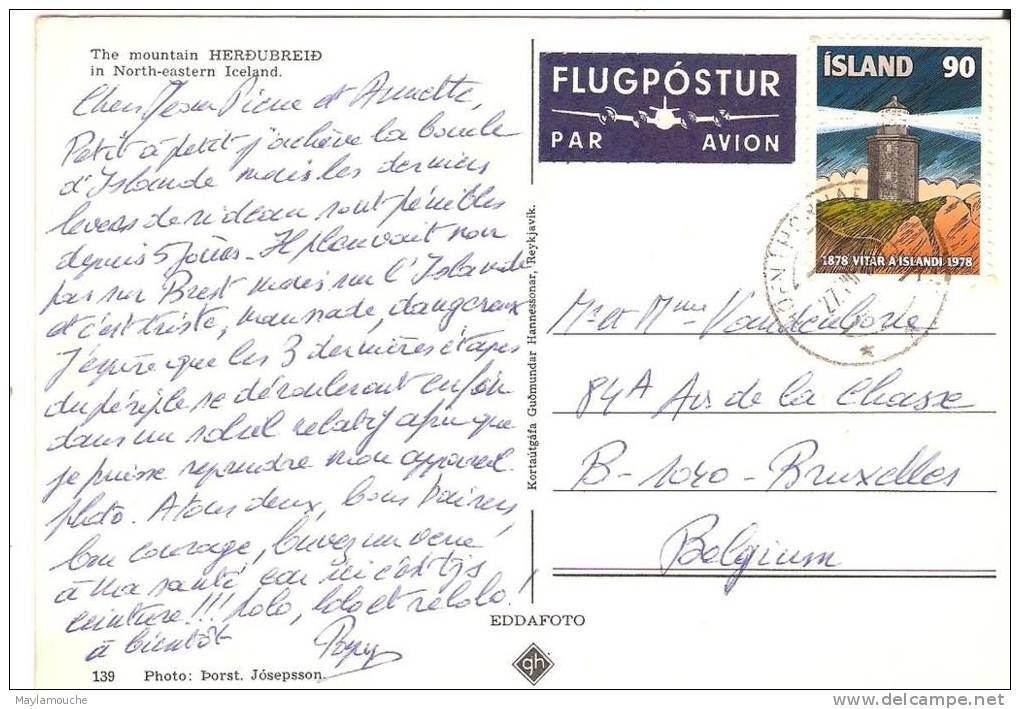 The mountain HERÐUBREIÐ
in North-eastern Iceland.
Chers Jean Pierre et Annette,
Petit à petit j'achève la boucle
d'Islande mais les derniers
levers de rideau sont pénibles
depuis 5 jours. Il pleuvait non
pas sur Brest mais sur l'Islande
et c'est triste, maussade, dangereux
J'espère que les 3 dernières étapes
du périple se dérouleront enfin
dans un soleil relatif afin que
je puisse reprendre mon appareil
photo. A tous deux, bons baisers,
bon courage, buvez un verre
à ma santé car ici c'est tjs
ceinture!!! lolo, lolo et relolo!
à bientôt
139 Photo: Þorst. Jósepsson.
Kortaútgáfa Guðmundar Hannessonar, Reykjavík.
EDDAFOTO
gh
FLUGPÓSTUR
PAR AVION
ÍSLAND 90
1878 VITAR Á ÍSLANDI 1978
27.
Mr et Mme Vandenborde
84A Av. de la Chasse
B-1040-Bruxelles
Belgium
Maylamouche
www.delcampe.net